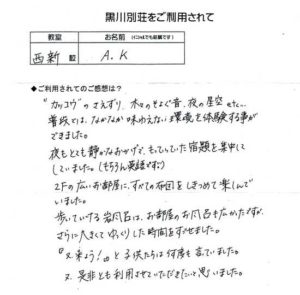 黒川別荘をご利用されて
教室
お名前(イニシャルでも結構です)
西新 殿
A.K
◆ご利用されてのご感想は？
"カッコウ"のさえずり、木々のそよぐ音、夜の星空etc...
普段では、なかなか味わえない環境を体験する事が
できました。
夜もとても静かなおかげで、もっていった宿題を集中して
していました。(もちろん英語です)
2Fの広いお部屋に、すべての布団をしきつめて楽しんで
いました。
歩いていける岩風呂は、お部屋のお風呂も広かたですが、
さらに大きくてゆっくりした時間をすごせました。
『又来よう!』と子供たちは何度も言っていました。
又是非とも利用させていただきたいと思いました。